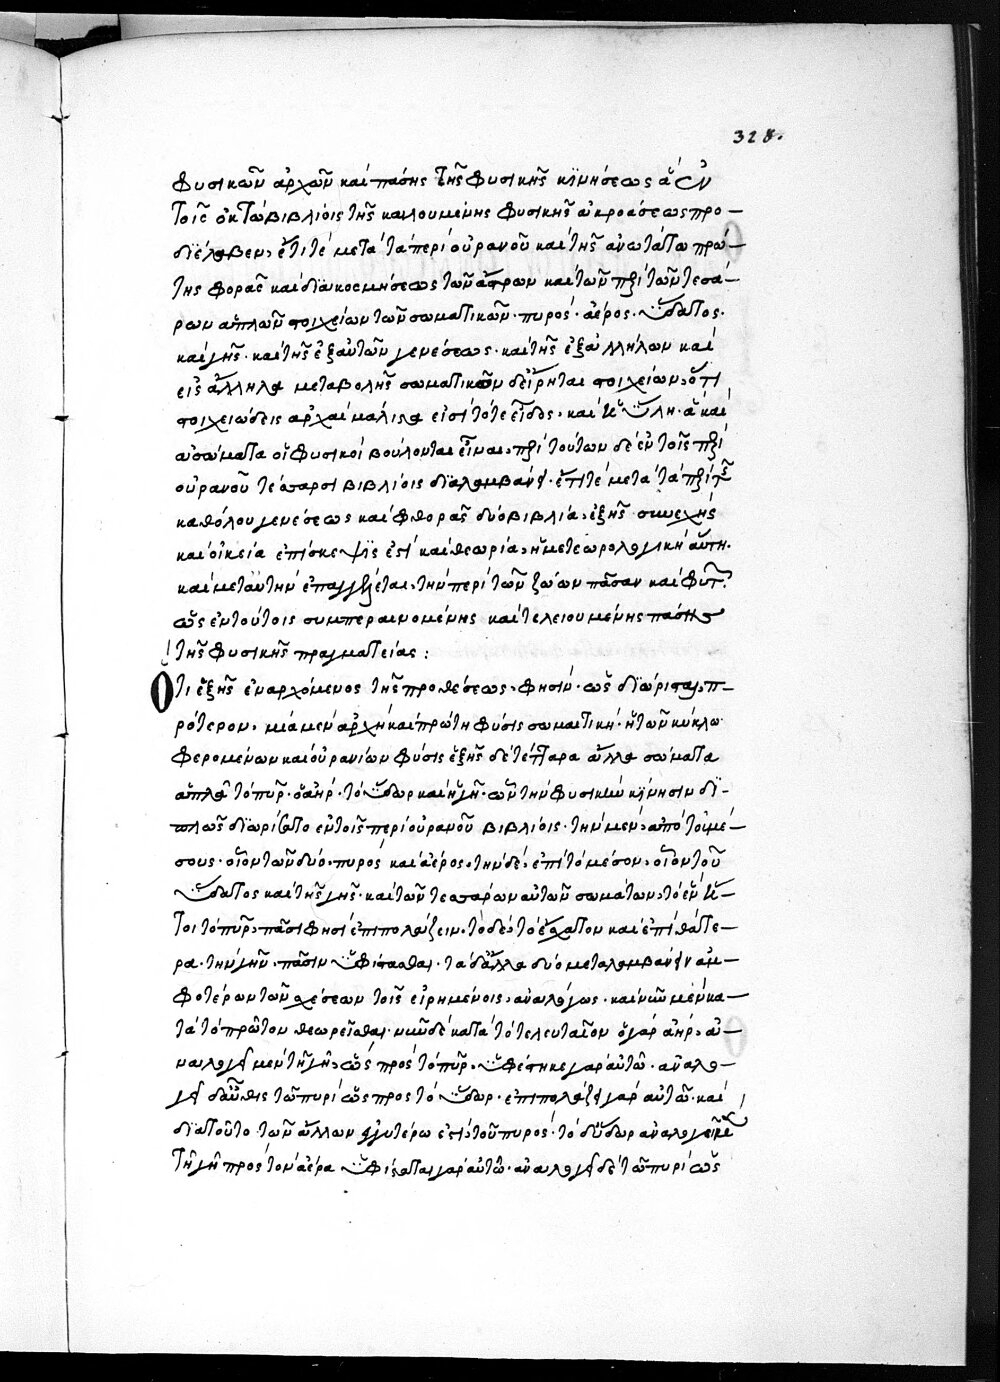 328.
φυσικῶν ἀρχῶν καὶ πάσης τῆς φυσικῆς κϊνήσεως ἃ ἐν
τοῖς ὀκτὼ βιβλίοις τῆς καλουμένης φυσικῆς ἀκροάσεως προ-
διέλαβεν, ἔτι τὲ μετὰ τὰ περὶ οὐρανοῦ καὶ τῆς ἀνωτάτω πρώ-
της φορᾶς καὶ διακοσμήσεως τῶν ἄστρων καὶ τῶν περὶ τῶν τεσσά-
ρων ἁπλῶν στοιχείων τῶν σωματικῶν· πυρός· ἀέρος· ὕδατος·
καὶ γῆς· καὶ τῆς ἐξ αὐτῶν γενέσεως· καὶ τῆς ἐξ ἀλλήλων καὶ
εἰς ἄλληλα μεταβολῆς σωματικῶν δ' εἴρηται στοιχείων, ὅτι
στοιχειώδεις ἀρχαὶ μάλιστα εἰσὶ τό τε εἶδος· καὶ ἡ ὕλη· ἃ καὶ
ἀσώματα οἱ φυσικοὶ βούλονται εἶναι, περὶ τούτων δὲ ἐν τοῖς περὶ
οὐρανοῦ τέσσαρσι βιβλίοις διαλαμβάνει· ἔτι τὲ μετὰ τὰ περὶ τῆς
καθόλου γενέσεως καὶ φθορᾶς δύο βιβλία, ἑξῆς συνεχής
καὶ οἰκεία ἐπίσκεψϊς ἐστὶ καὶ θεωρία, ἡ μετεωρολογικὴ αὕτη·
καὶ μετὰ ταύτην ἐπαγγέλεται, τὴν περὶ τῶν ζώων πᾶσαν καὶ φυτῶν·
ὡς ἐν τούτοις συμπεραινομένης καὶ τελειουμένης πάσης
τῆς φυσικῆς πραγματείας:
Ὅτι ἑξῆς ἐναρχόμενος τῆς προθέσεως, φησὶν· ὡς διώρισται π-
ρότερον, μία μὲν ἀρχὴ καὶ πρώτη φύσις σωματικὴ· ἡ τῶν κύκλω
φερομένων καὶ οὐρανίων φύσις ἑξῆς δὲ τέτταρα ἄλλα σώματα
ἁπλᾶ τὸ πῦρ· ὁ ἀὴρ· τὸ ὕδωρ καὶ ἡ γῆ· ὧν τὴν φυσικὴν κίνησιν δι-
πλῶς διωρίσατο ἐν τοῖς περὶ οὐρανοῦ βιβλίοις· τὴν μὲν, ἀπὸ τοῦ μέ-
σους· οἷον τῶν δύο, πυρὸς καὶ ἀέρος, τὴν δὲ, ἐπὶ τὸ μέσον, οἷον τοῦ
ὕδατος καὶ τῆς γῆς· καὶ τῶν τεσσάρων αὐτῶν σωμάτων, τὸ ἓν ἤ-
τοι τὸ πῦρ, πᾶσι φησὶ ἐπιπολάζειν, τὸ δὲ, τὸ ἔσχατον καὶ ἐπὶ θάτε-
ρα· τὴν γῆν· πᾶσιν ὑφίστασθαι· τὰ δ' ἄλλα δύο μεταλαμβάνειν ἀμ-
φοτέρων τῶν σχέσεων τοῖς εἰρημένοις, ἀναλόγως· καὶ νῦν μὲν κα-
τὰ τὸ πρῶτον θεωρεῖσθαι· νῦν δὲ κατὰ τὸ τελευταῖον ὁ γὰρ ἀὴρ, ἀ-
ναλογεῖ μὲν τῆ γῆ, ὡς πρὸς τὸ πῦρ, ὑφέστηκε γὰρ αὐτῶ· ἀναλο-
γεῖ δ' αὖθις τῶ πυρὶ ὡς προς τὸ ὕδωρ· ἐπιπολάζει γὰρ αὐτῶ· καὶ
διατοῦτο τῶν ἄλλων ἐγγυτέρω ἐστὶ, τοῦ πυρός· τὸ δ' ὕδωρ ἀναλογεῖ μὲν
τῆ γῆ πρὸς τὸν ἀέρα ὑφίσταται γὰρ αὐτῶ· ἀναλογεῖ δὲ τῶ πυρὶ ὡς